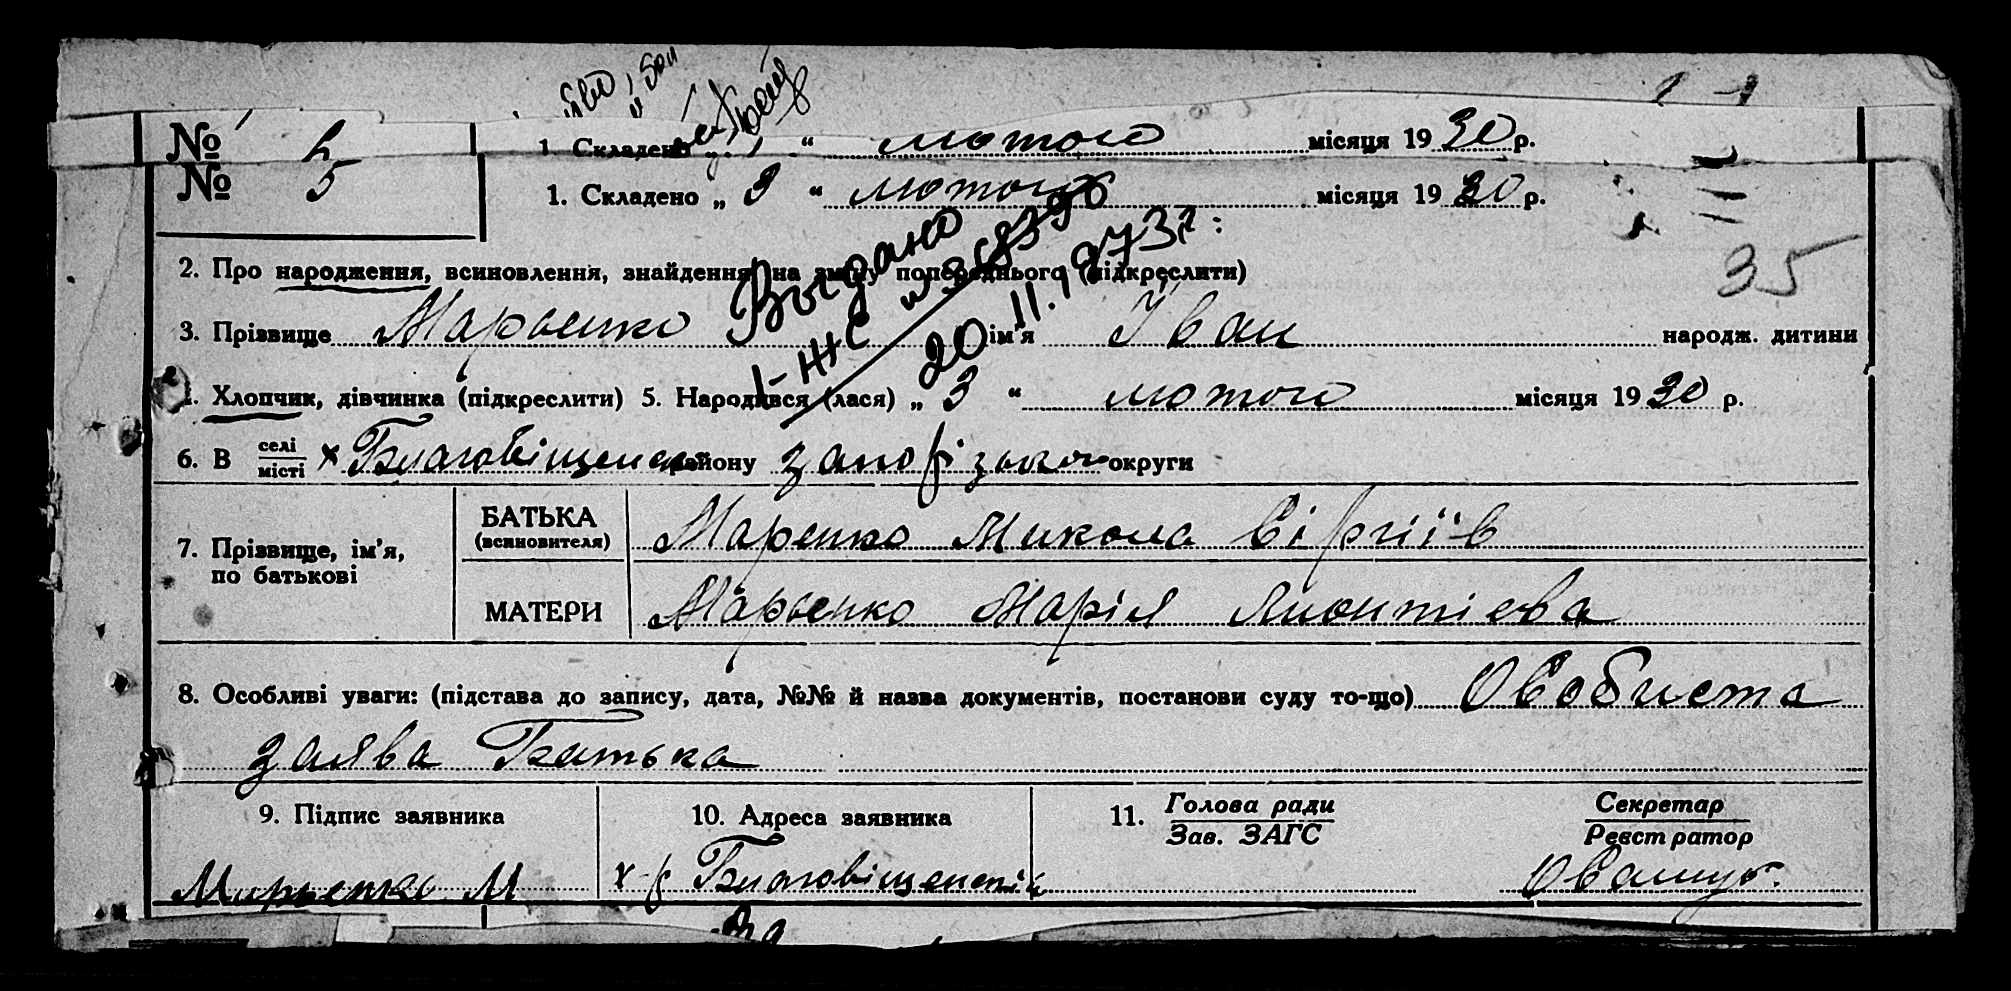 № 1. Складено „ “ лютого місяця 1930 р.
№ 5 1. Складено „ 3 “ лютого місяця 1930 р.
2. Про народження, всиновлення, знайдення, на зміну попереднього (підкреслити)
35
Выдано
I-ЖС № 368396
20.11.1973г.
3. Прізвище Марьенко ім'я Іван народж. дитини
4. Хлопчик, дівчинка (підкреслити) 5. Народився (лася) „ 3 “ лютого місяця 1930 р.
6. В селі/місті х Благовіщенськ району Запорізького округи
7. Прізвище, ім'я, по батькові
БАТЬКА (всиновителя) Маренко Микола Сіргіїв
МАТЕРИ Марьенко Марія Лионтієва
8. Особливі уваги: (підстава до запису, дата, №№ й назва документів, постанови суду то-що) Особиста
заява Батька
9. Підпис заявника 10. Адреса заявника 11. Голова ради/Зав. ЗАГС Секретар/Реєстратор
Марьенко М х-р Благовіщенськ